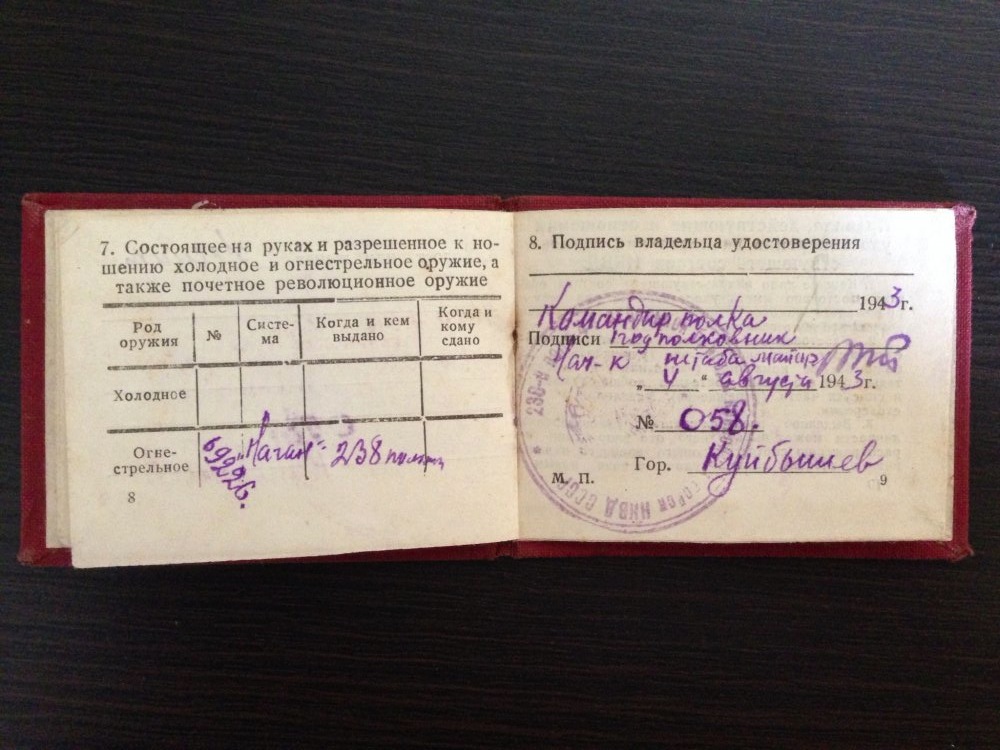 7. Состоящее на руках и разрешенное к но-
шению холодное и огнестрельное оружие, а
также почетное революционное оружие
Род оружия № Систе-ма Когда и кем выдано Когда и кому сдано
Холодное
Огне-
стрельное "Наган" 238
8
8. Подпись владельца удостоверения
1943г.
Командир полка
Подписи подполковник
Нач-к штаба майор
„4“ августа 1943г.
№ 058.
Гор. Куйбышев
М. П.
9
НКВД СССР